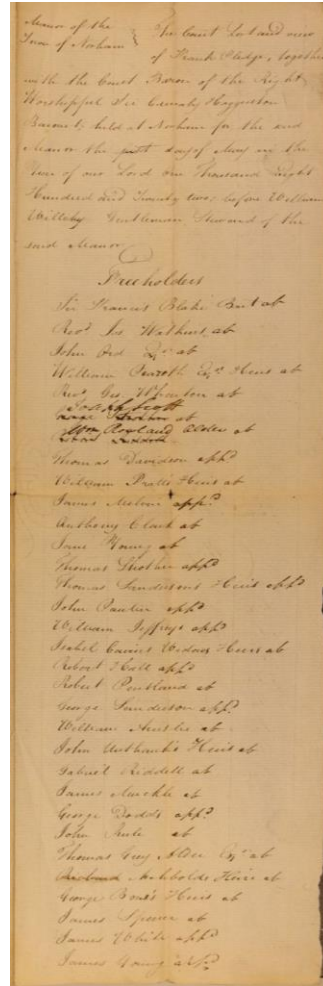 Manor of the
Town of Norham
The Court Leet and view
of Frank Pledge, together
with the Court Baron of the Right
Worshipful Sir Carnaby Haggerston
Baronet, held at Norham for the said
Manor the day of May in the
Year of our Lord one Thousand Eight
Hundred and Twenty two, before William
Willoby Gentleman, Steward of the
said Manor
Freeholders
Sir Francis Blake Bart ab
Revd Jas Watkins ab
John Ord Esqr ab
William Esqrs Heirs ab
Revd Geo Wharton ab
Joseph Scott
ab
Wm Rowland Alder ab
Thomas Davidson appd
William Pratts Heirs ab
James appd
Anthony Clark ab
Jane Young ab
Thomas Strother appd
Thomas Sandersons Heirs appd
John Paulin appd
William Jeffreys appd
Isabel Cairns Widows Heirs ab
Robert Hall appd
Robert ab
George Sanderson appd
William Anslie ab
John Unthank's Heirs ab
Gabriel Riddell ab
James Muckle ab
George Dodds appd
John Rule ab
Thomas Grey Alder Esqr ab
Archbolds Heirs ab
George Bones Heirs ab
James Spence ab
James White appd
James Young appd